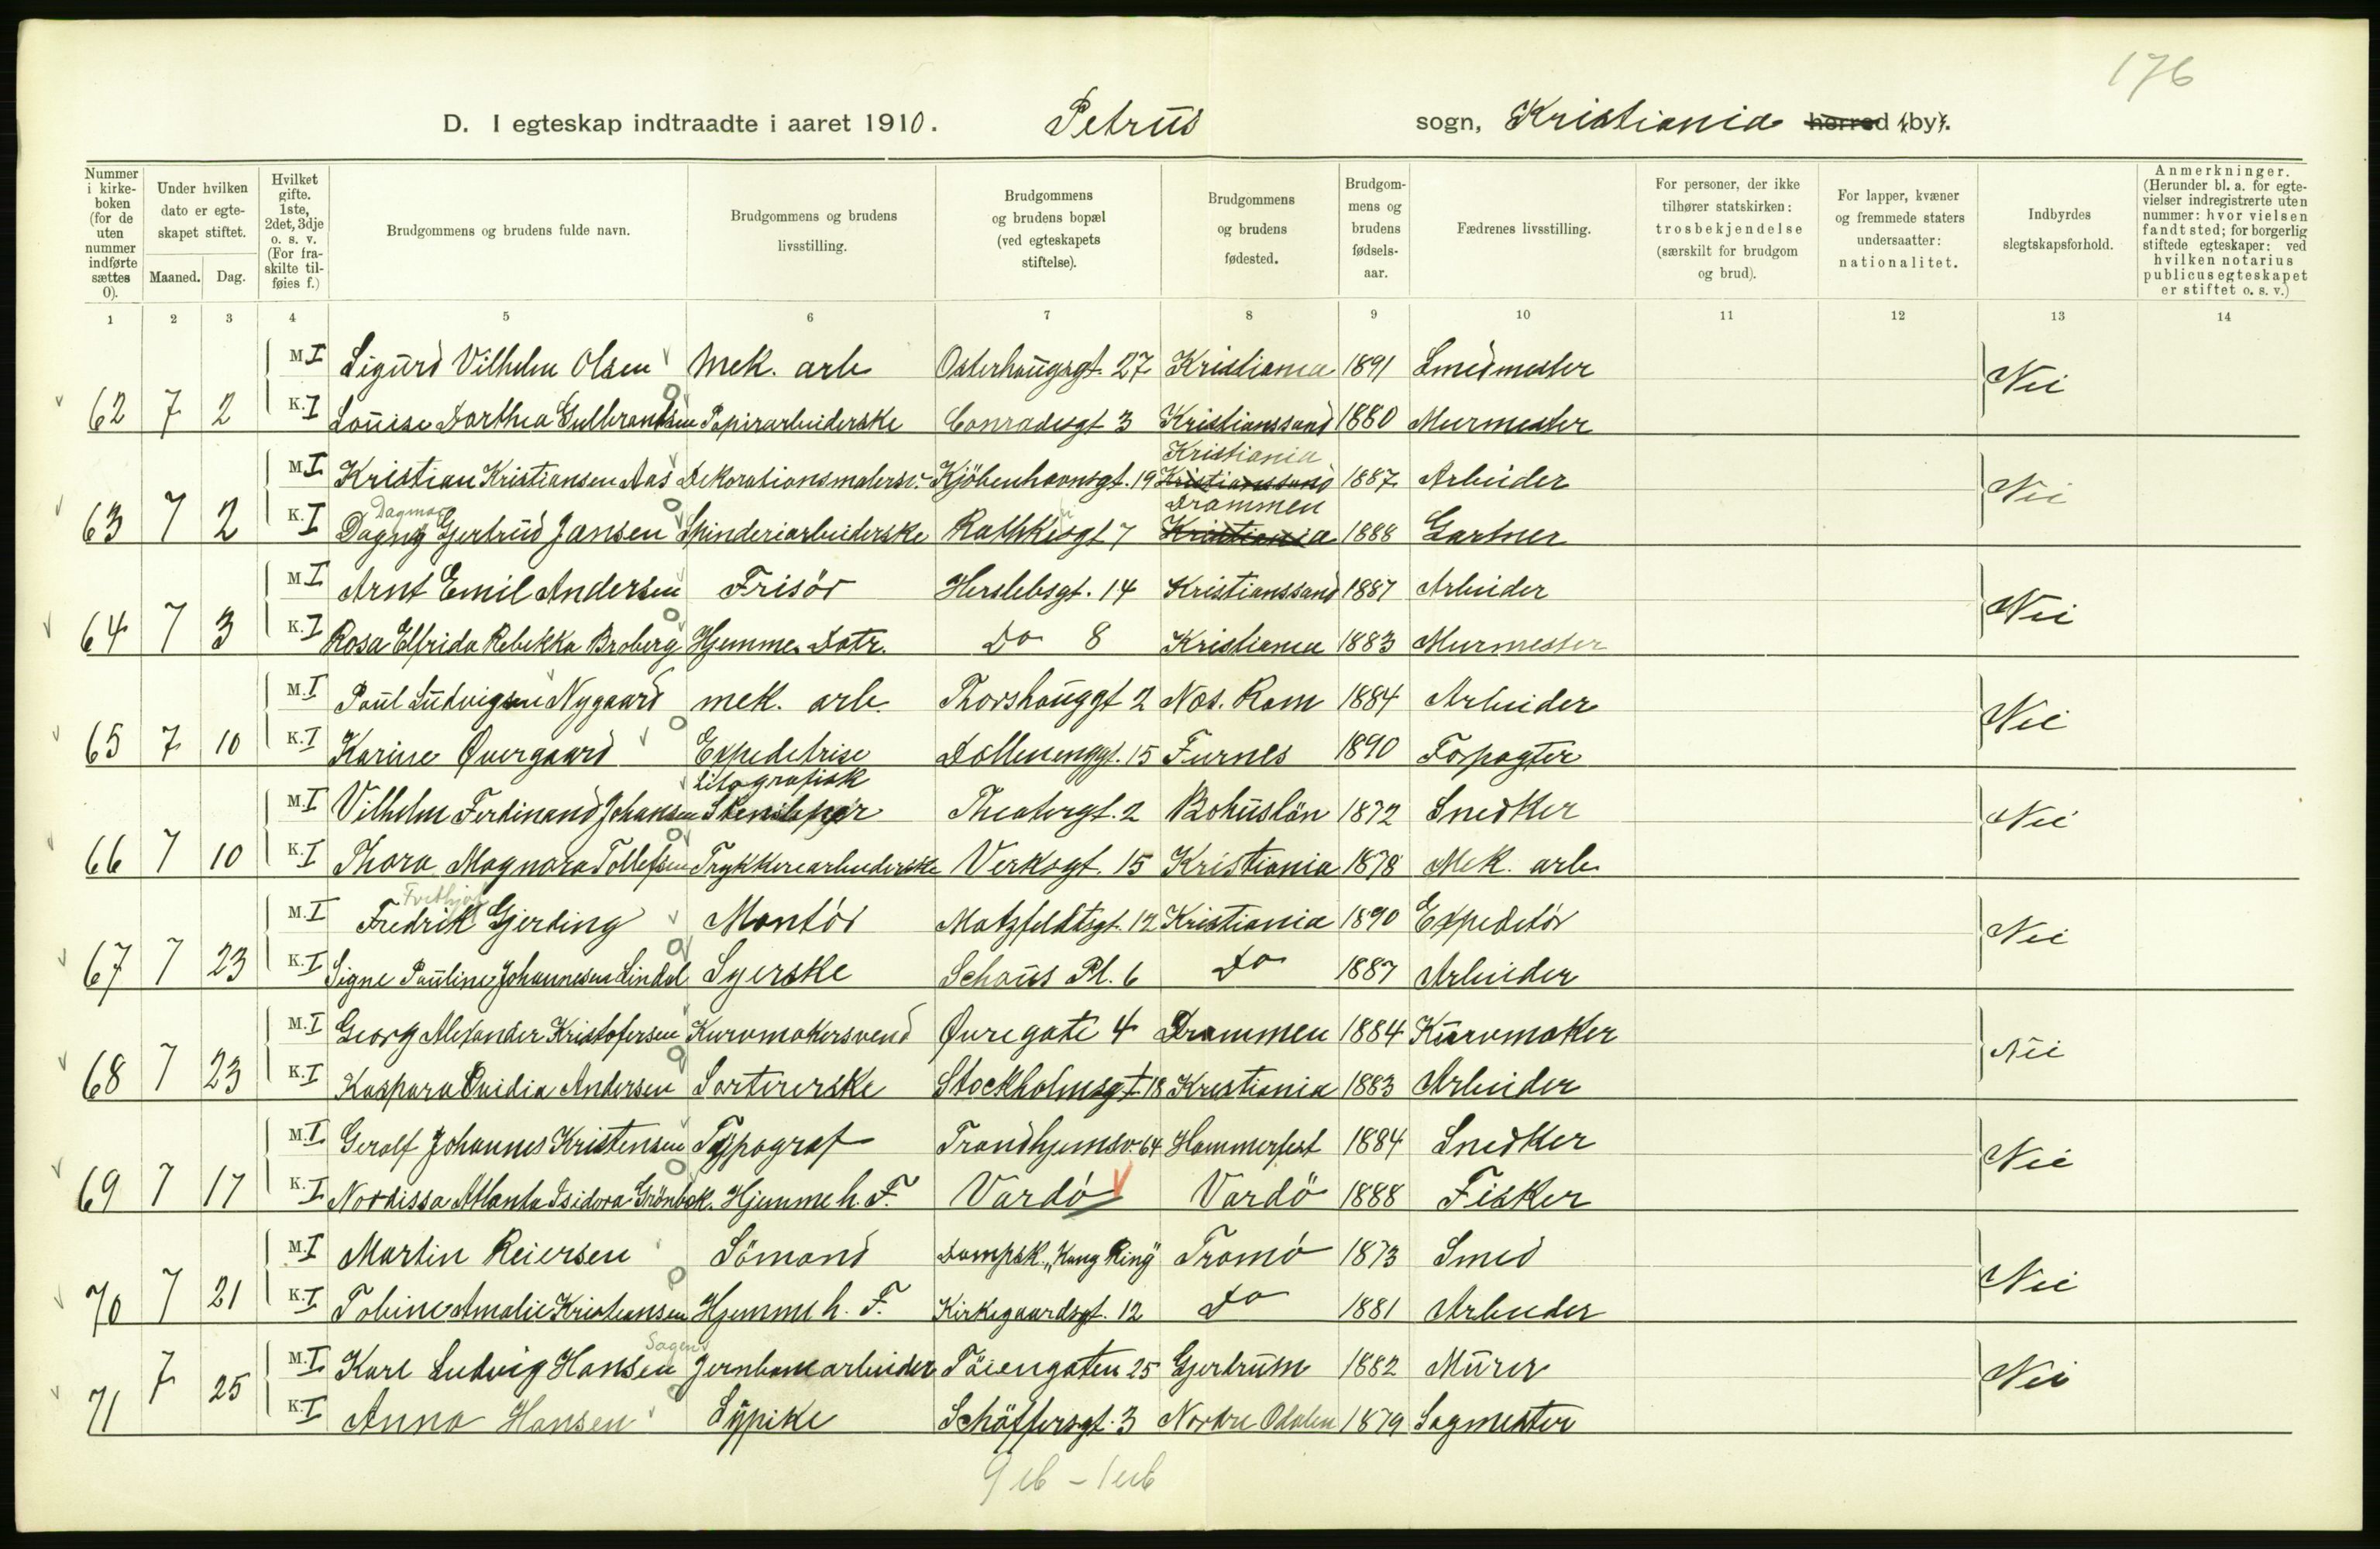 176
D. I egteskap indtraadte i aaret 1910. Petrus sogn, Kristiania herred (by).
Nummer i kirkeboken (for de uten nummer indførte sættes 0).
Under hvilken dato er egteskapet stiftet.
Maaned. Dag.
Hvilket gifte. 1ste, 2det, 3dje o. s. v. (For fraskilte tilføies f.)
Brudgommens og brudens fulde navn.
Brudgommens og brudens livsstilling.
Brudgommens og brudens bopæl (ved egteskapets stiftelse).
Brudgommens og brudens fødested.
Brudgommens og brudens fødselsaar.
Fædrenes livsstilling.
For personer, der ikke tilhører statskirken: trosbekjendelse (særskilt for brudgom og brud).
For lapper, kvæner og fremmede staters undersaatter: nationalitet.
Indbyrdes slegtskapsforhold.
Anmerkninger. (Herunder bl. a. for egtevielser indregistrerte uten nummer: hvor vielsen fandt sted; for borgerlig stiftede egteskaper: ved hvilken notarius publicus egteskapet er stiftet o. s. v.)
1 2 3 4 5 6 7 8 9 10 11 12 13 14
M. I Sigurd Vilhelm Olsen Mek. arb Osterhausgt. 27 Kristiania 1891 Smedmester Nei
62 7 2 K. I Louise Dorthea Gulbrandsen Papirarbeiderske Conradisgt 3 Kristianssand 1880 Murmester
Kristiania
M. I Kristian Kristiansen Aas Dekorationsmalersv. Kjöbenhavnsgt. 19 Kristianssand 1887 Arbeider Nei
Dagmar Drammen
63 7 2 K. I Dagny Gertrud Jansen Spinderiarbeiderske Rathkesgt 7 Kristiania 1888 Gartner
M. I Arnt Emil Andersen Frisör Herslebsgt. 14 Kristianssand 1887 Arbeider Nei
64 7 3 K. I Rosa Elfrida Rebekka Broberg Hjemme. Datr. Do 8 Kristiania 1883 Murmester
M. I Paul Ludvigsen Nygaard mek. arb. Thorshauggt 2 Næs. Rom 1884 Arbeider Nei
65 7 10 K. I Karine Øvergaard Expeditrise Dælenenggt. 15 Furnes 1890 Forpagter
Litografisk
M. I Vilhelm Ferdinand Johansen Stensliper Theatergt. 2 Bohuslän 1872 Snedker Nei
66 7 10 K. I Thora Magnora Tollefsen Trykkerearbeiderske Verksgt. 15 Kristiania 1878 Mek. arb.
Frethjof
M. I Fredrik Gjerding Montör Motzfeldtsgt. 12 Kristiania 1890 Expeditör Nei
67 7 23 K. I Signe Pauline Johannesen Lindal Syerske Schous Pl. 6 Do 1887 Arbeider
M. I Georg Alexander Kristofersen Kurvmakersvend Øvregate 4 Drammen 1884 Kurvmaker Nei
68 7 23 K. I Kaspara Ovidia Andersen Sortererske Stockholmsgt 18 Kristiania 1883 Arbeider
M. I Geralf Johannes Kristensen Typograf Trondhjemsv. 64 Hammerfest 1884 Snedker Nei
69 7 17 K. I Nordissa Atlanta Isidora Grönbek. Hjemme h. F. Vardö Vardö 1888 Fisker
M. I Martin Reiersen Sömand Dampsk. „Kong Ring" Tromö 1873 Smed Nei
70 7 21 K. I Tobine Amalie Kristiansen Hjemme h. F. Kirkegaardsgt. 12 Do 1881 Arbeider
Sagene
M. I Karl Ludvig Hansen Jernbanearbeider Töiengaten 25 Gjerdrum 1882 Murer Nei
71 7 25 K. I Anna Hansen Sypike Schöffersgt. 3 Nordre Odalen 1879 Sagmester
9 ub - 1 uub